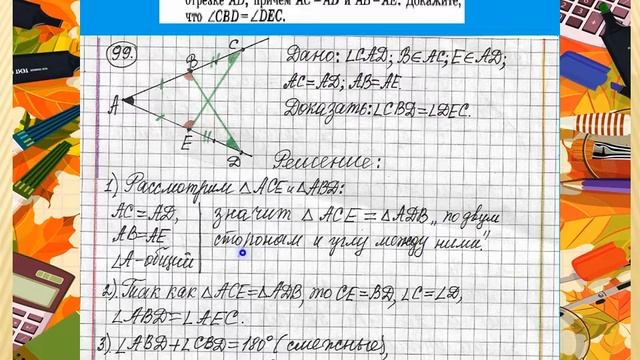 отрезке AD, причем AC = AD и AB = AE. Докажите,
что ∠CBD = ∠DEC.
99.
Дано: ∠CAD; B∈AC; E∈AD;
AC=AD; AB=AE.
Доказать: ∠CBD=∠DEC.
A
B
C
E
D
Решение:
1) Рассмотрим △ACE и △ABD:
AC=AD,
AB=AE
∠A-общий
значит △ACE=△ADB „по двум
сторонам и углу между ними".
2) Так как △ACE=△ADB, то CE=BD, ∠C=∠D,
∠ABD=∠AEC.
3) ∠ABD+∠CBD=180° (смежные),